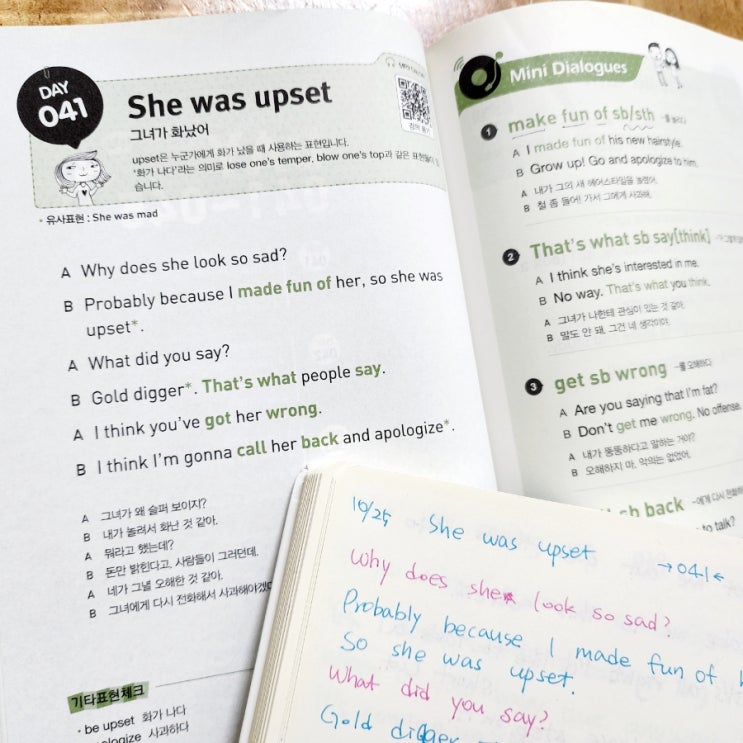 DAY
041
She was upset
그녀가 화났어
upset은 누군가에게 화가 났을 때 사용하는 표현입니다.
'화가 나다'라는 의미로 lose one's temper, blow one's top과 같은 표현들이
습니다.
• 유사표현 : She was mad
A Why does she look so sad?
B Probably because I made fun of her, so she was
upset*.
A What did you say?
B Gold digger*. That's what people say.
A I think you've got her wrong.
B I think I'm gonna call her back and apologize*.
A 그녀가 왜 슬퍼 보이지?
B 내가 놀려서 화난 것 같아.
A 뭐라고 했는데?
B 돈만 밝힌다고. 사람들이 그러던데.
A 네가 그녈 오해한 것 같아.
B 그녀에게 다시 전화해서 사과해야겠
기타표현체크
• be upset 화가 나다
사과하다
Mini Dialogues
1 make fun of sb/sth
A I made fun of his new hairstyle.
B Grow up! Go and apologize to him.
A 내가 그의 새 헤어스타일을 놀렸어.
B 철 좀 들어! 가서 그에게 사과해.
2 That's what sb say[think]
A I think she's interested in me.
B No way. That's what you think.
A 그녀가 나한테 관심이 있는 것 같아.
B 말도 안 돼. 그건 네 생각이야.
3 get sb wrong ~를 오해하다
A Are you saying that I'm fat?
B Don't get me wrong. No offense.
A 내가 뚱뚱하다고 말하는 거야?
B 오해하지 마. 악의는 없었어.
sb back
to talk?
10/25 She was upset →041←
Why does she look so sad?
Probably because I made fun of
So she was upset.
What did you say?
Gold digger